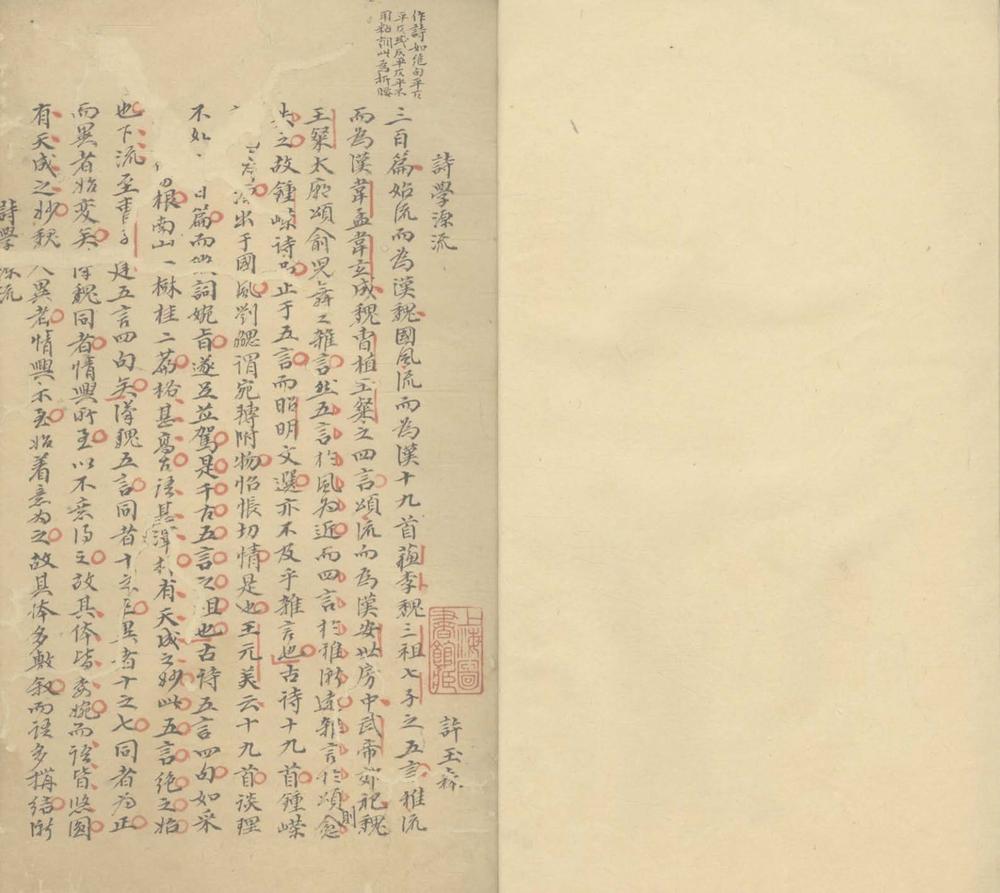 作詩如絕句平仄
平仄或仄平仄平不
用粘訓此為折腰
詩學源流 許玉森
上海圖書館藏
三百篇始流而為漢魏國風流而為漢十九首蘇李魏三祖七子之五言雅流
而為漢韋孟韋玄成魏曹植王粲之四言頌流而為漢安世房中武帝郊祀魏
王粲太廟頌俞兒舞之雜言然五言於風為近而四言於雅漸遠雜言於頌愈則
之故鍾嶸詩 止于五言而昭明文選亦不及乎雜言也古詩十九首鍾嶸
出于國風劉勰謂宛轉附物怊悵切情是也王元美云十九首談理
不如 篇而 詞婉旨遂足並駕是千古五言之祖也古詩五言四句如采
根南山一樹桂二篇格甚高古語甚渾 有天成之妙此五言絕之始
也下流至 五言四句矣漢魏五言同者十之 異者十之七同者為正
而異者始變矣 魏同者情興所至以不意得之故其體皆委婉而語皆悠圓
有天成之妙魏 異者情興未至始着意為之故其體多敷叙而語多搆結漸
詩學源流